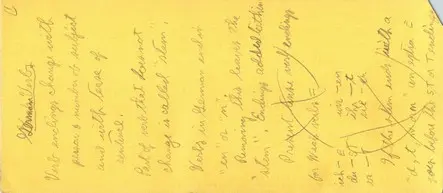 German Verbs
Verb endings change with
person & number of subject
and with tense of
sentence.
Part of verb that does not
change is called "stem".
Verbs in German end in
"en" or "n"
Removing this leaves the
"stem". Endings added to this
Present tense verb endings
for Weak verbs =
ich - E wir - en
du - ST ihr - t
er - t sie -
If the stem ends with a
"d, t, m or n" an extra E
goes before the ST T endings